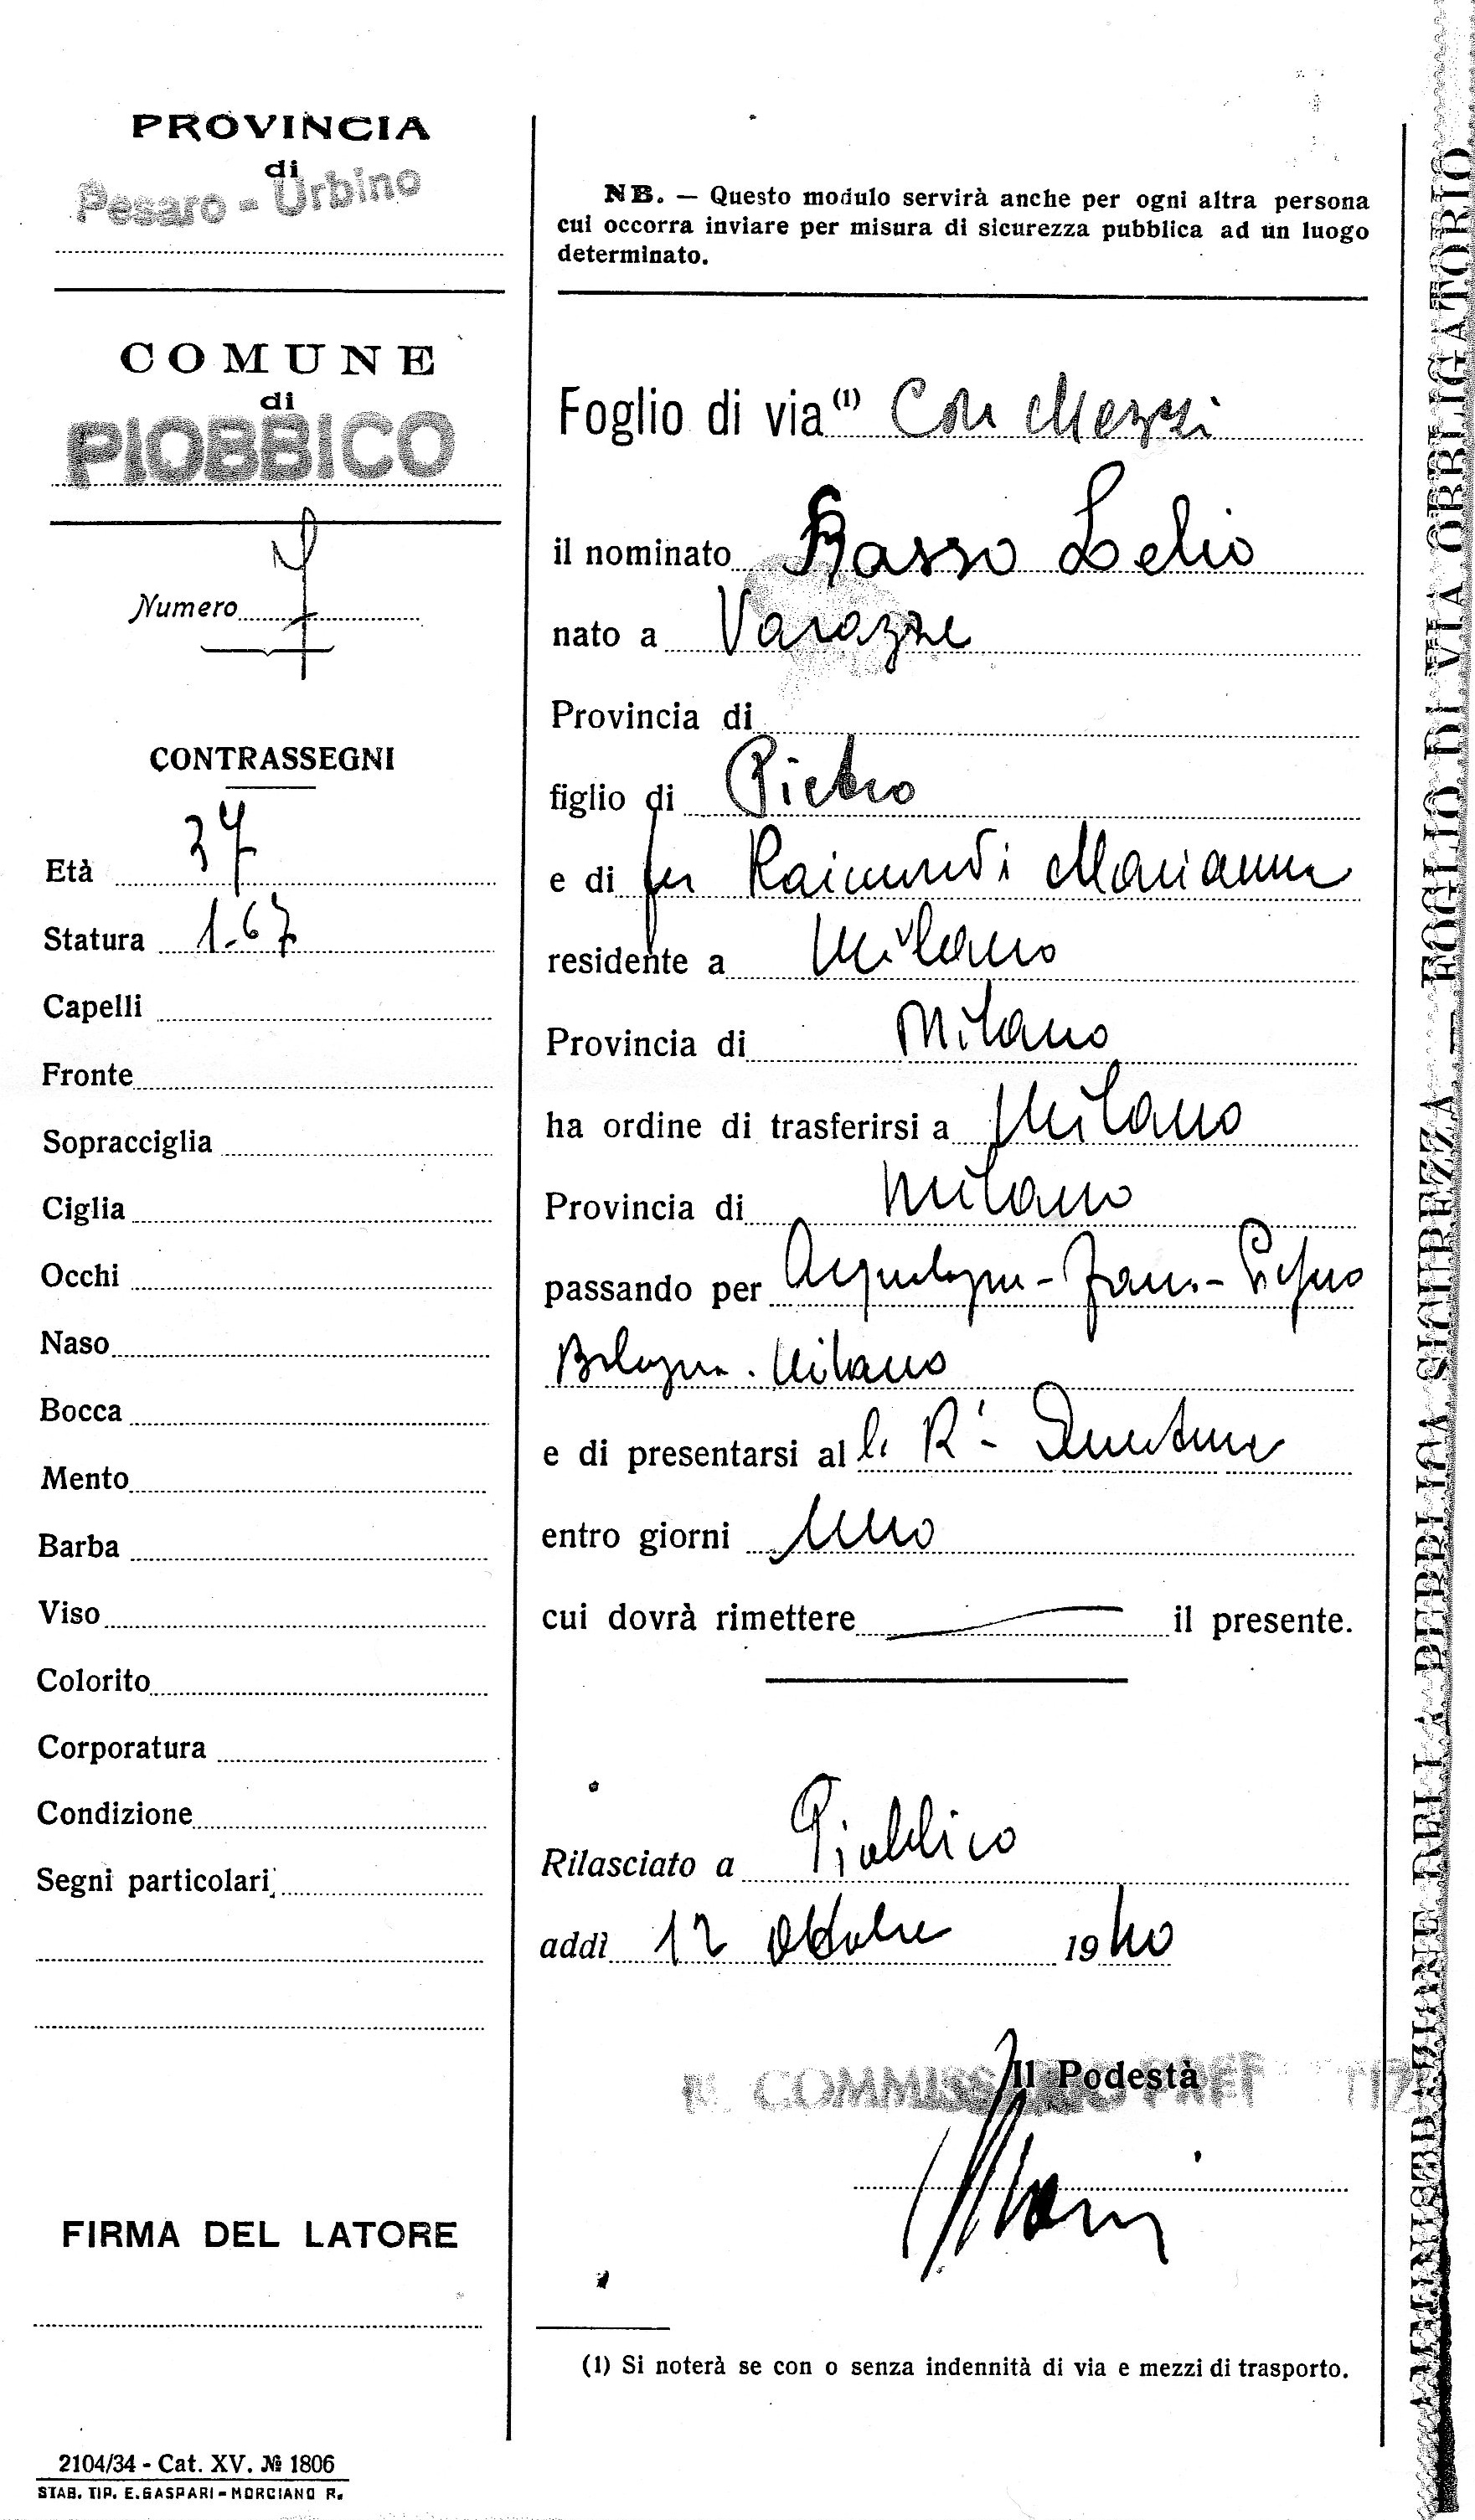 PROVINCIA
di
Pesaro - Urbino
COMUNE
di
PIOBBICO
Numero
CONTRASSEGNI
Età 37
Statura 1.67
Capelli
Fronte
Sopracciglia
Ciglia
Occhi
Naso
Bocca
Mento
Barba
Viso
Colorito
Corporatura
Condizione
Segni particolari
FIRMA DEL LATORE
2104/34 - Cat. XV. № 1806
STAB. TIP. E. GASPARI - MORCIANO R.
NB. — Questo modulo servirà anche per ogni altra persona
cui occorra inviare per misura di sicurezza pubblica ad un luogo
determinato.
Foglio di via (1) Con Mezzi
il nominato Basso Lelio
nato a Varazze
Provincia di
figlio di Pietro
e di fu Raimondi Marianna
residente a Milano
Provincia di Milano
ha ordine di trasferirsi a Milano
Provincia di Milano
passando per Acqualagna - Fano -
Bologna - Milano
e di presentarsi al la R. Questura
entro giorni Uno
cui dovrà rimettere il presente.
Rilasciato a Piobbico
addì 12 Ottobre 1940
Il Podestà
(1) Si noterà se con o senza indennità di via e mezzi di trasporto.
AMMINISTRAZIONE DELLA PUBBLICA SICUREZZA — FOGLIO DI VIA OBBLIGATORIO